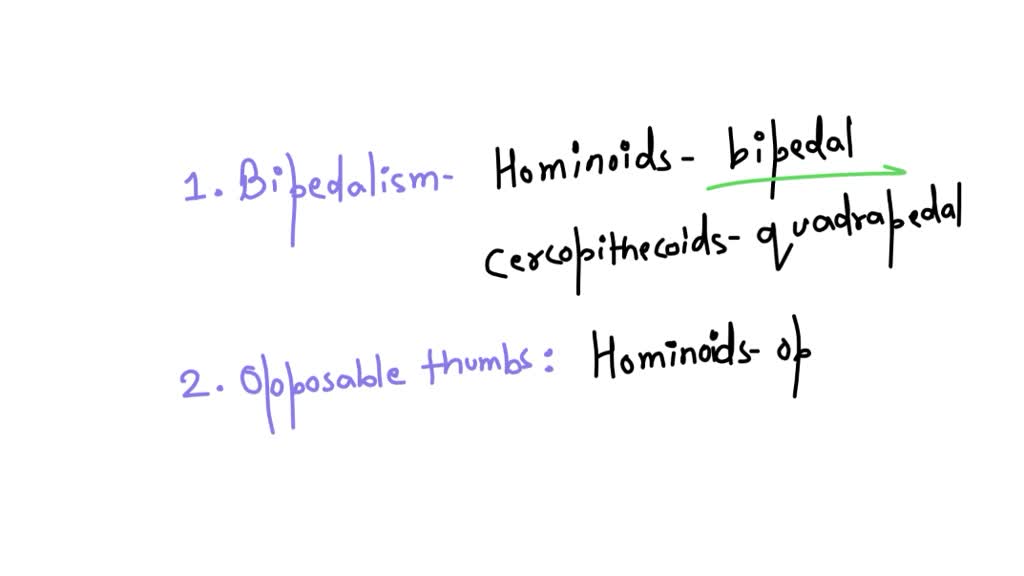 1. Bipedalism- Hominoids- bipedal
cercopithecoids- quadrapedal
2. Opposable thumbs: Hominoids- op